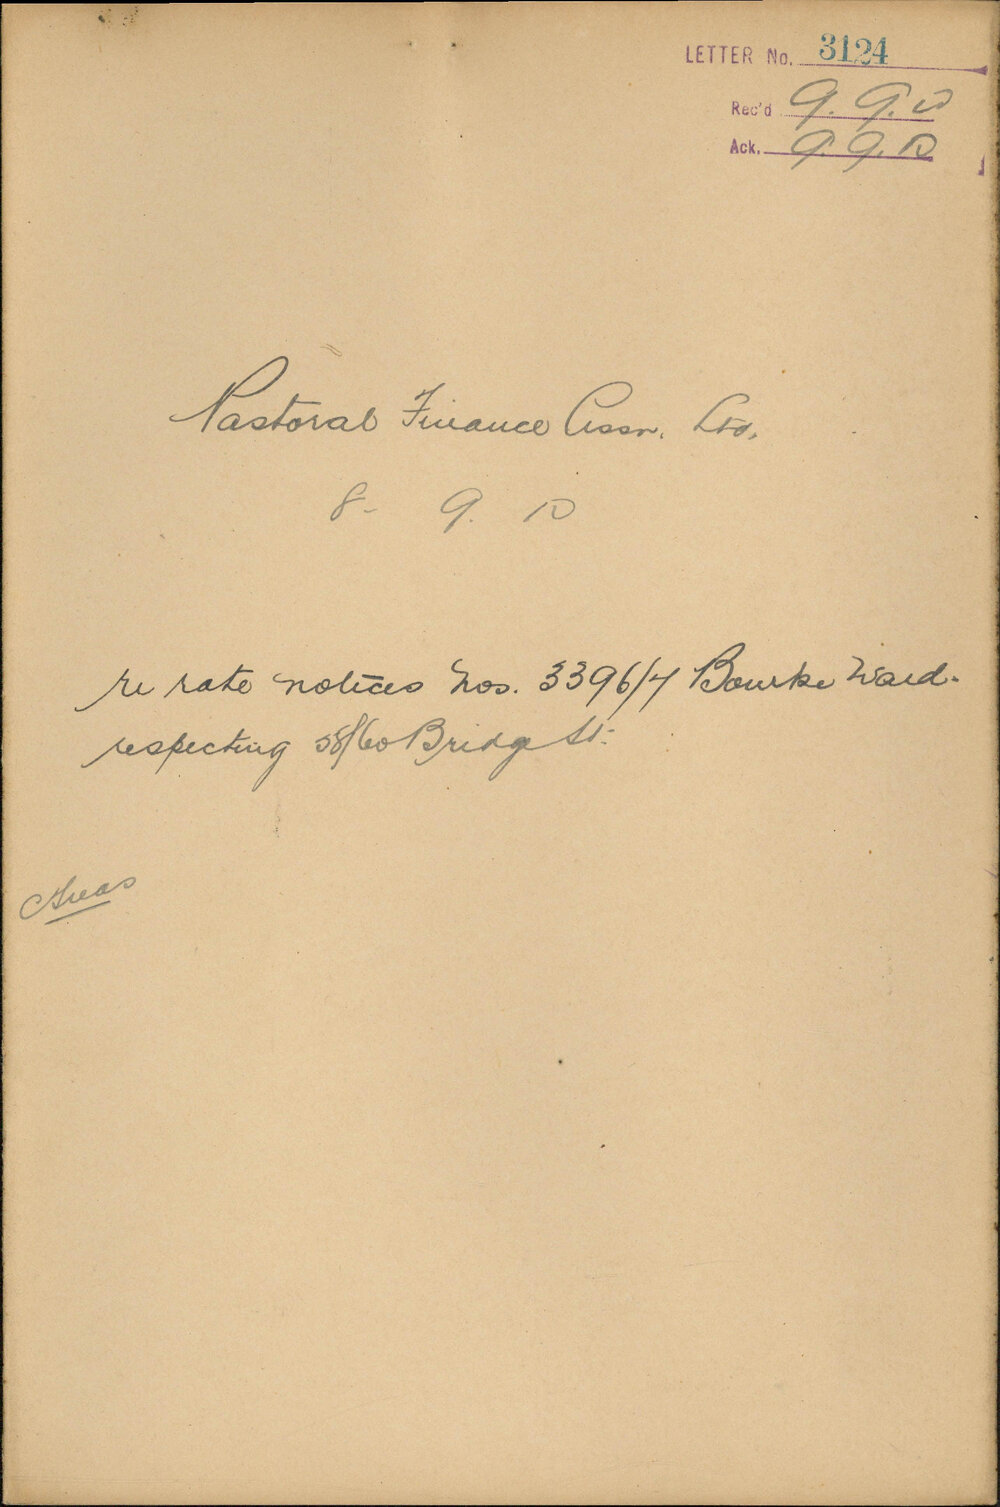 LETTER No. 3124
Rec'd 9. 9. 10
Ack. 9. 9. 10
Pastoral Finance Assn. Ltd.
8. 9. 10
re rate notices Nos. 3396/7 Bourke Ward.
respecting 58/60 Bridge St.
Areas